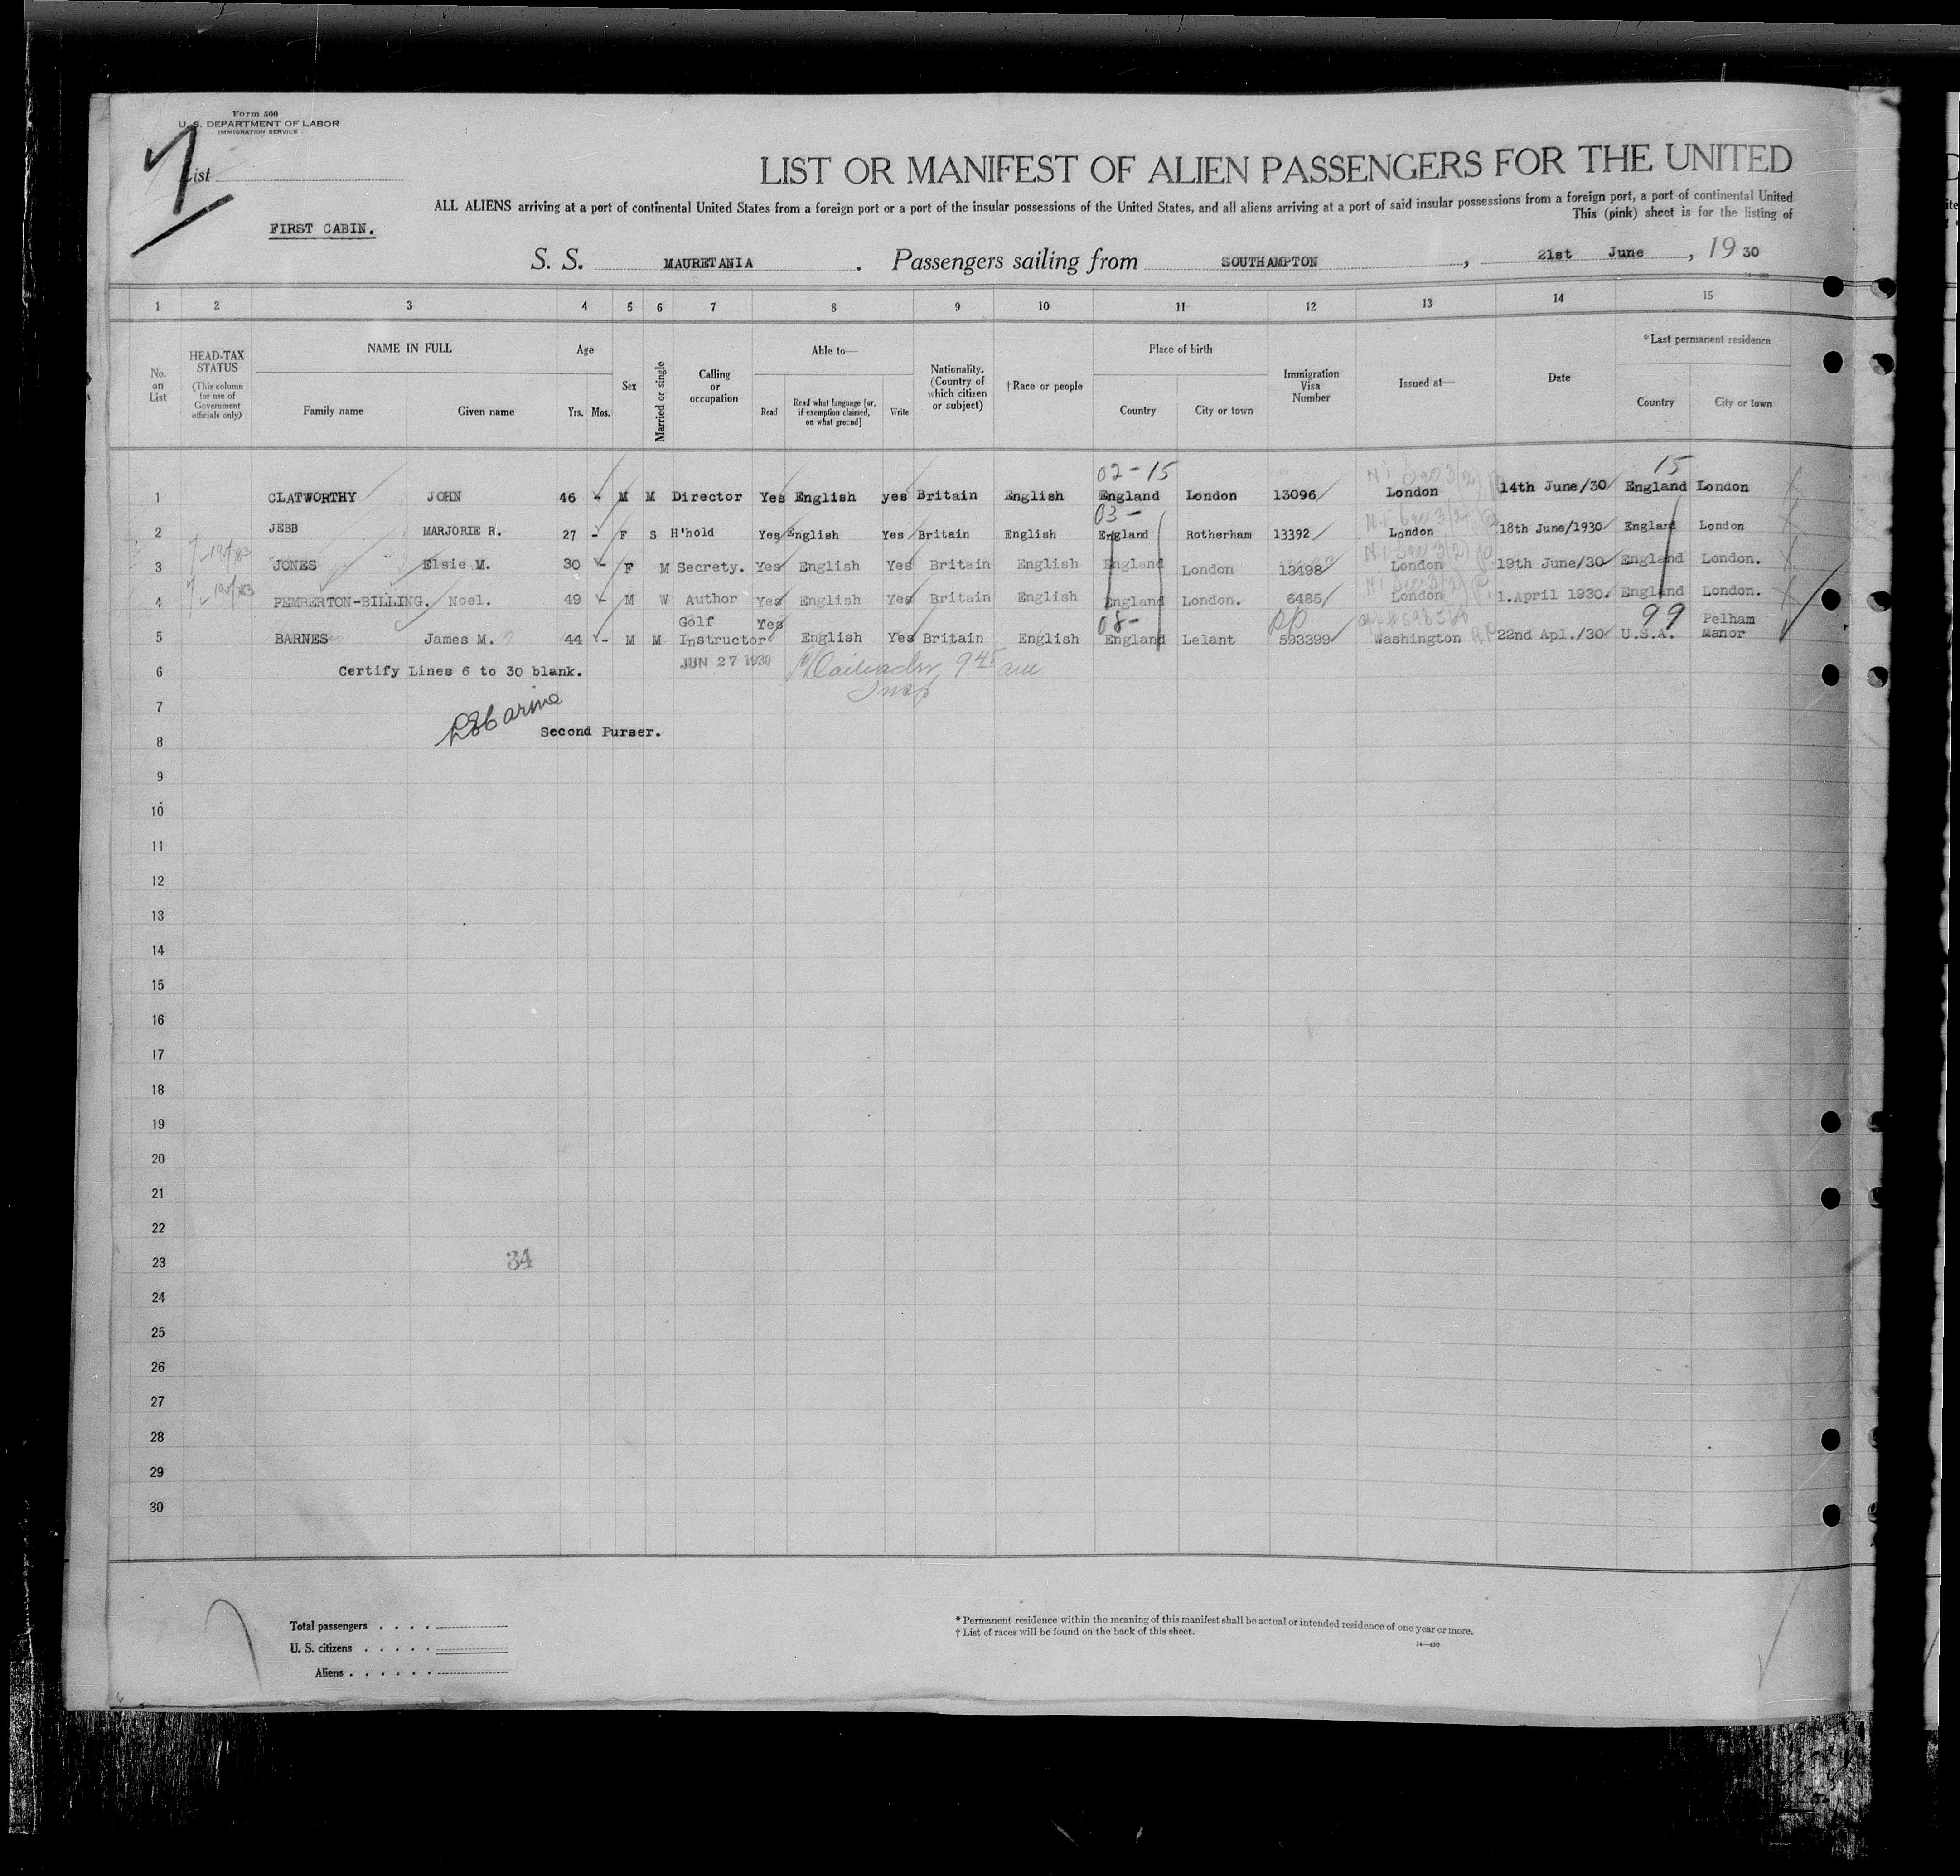 Form 500
U. S. DEPARTMENT OF LABOR
IMMIGRATION SERVICE
List
7
LIST OR MANIFEST OF ALIEN PASSENGERS FOR THE UNITED
ALL ALIENS arriving at a port of continental United States from a foreign port or a port of the insular possessions of the United States, and all aliens arriving at a port of said insular possessions from a foreign port, a port of continental United
This (pink) sheet is for the listing of
FIRST CABIN.
S. S. MAURETANIA. Passengers sailing from SOUTHAMPTON, 21st June, 1930
1 2 3 4 5 6 7 8 9 10 11 12 13 14 15
No. on List
HEAD-TAX STATUS (This column for use of Government officials only)
NAME IN FULL
Family name Given name
Age
Yrs. Mos.
Sex
Married or single
Calling or occupation
Able to—
Read
Read what language [or, if exemption claimed, on what ground]
Write
Nationality. (Country of which citizen or subject)
†Race or people
Place of birth
Country City or town
Immigration Visa Number
Issued at—
Date
*Last permanent residence
Country City or town
02-15 15
1 CLATWORTHY JOHN 46 - M M Director Yes English yes Britain English England London 13096 London 14th June/30 England London
03-
2 JEBB MARJORIE R. 27 - F S H'hold Yes English Yes Britain English England Rotherham 13392 London 18th June/1930 England London
3 JONES Elsie M. 30 - F M Secrety. Yes English Yes Britain English England London 13498 London 19th June/30 England London.
4 PEMBERTON-BILLING. Noel. 49 - M W Author Yes English Yes Britain English England London. 6485 London 1.April 1930. England London.
08- PP 99
5 BARNES James M. 44 - M M Golf Instructor Yes English Yes Britain English England Lelant 593399 Washington 22nd Apl./30 U.S.A. Pelham Manor
JUN 27 1930 9 45 am
Insp
6 Certify Lines 6 to 30 blank.
7
8 Second Purser.
9
10
11
12
13
14
15
16
17
18
19
20
21
22
23
34
24
25
26
27
28
29
30
Total passengers
U. S. citizens
Aliens
* Permanent residence within the meaning of this manifest shall be actual or intended residence of one year or more.
† List of races will be found on the back of this sheet.
14—430